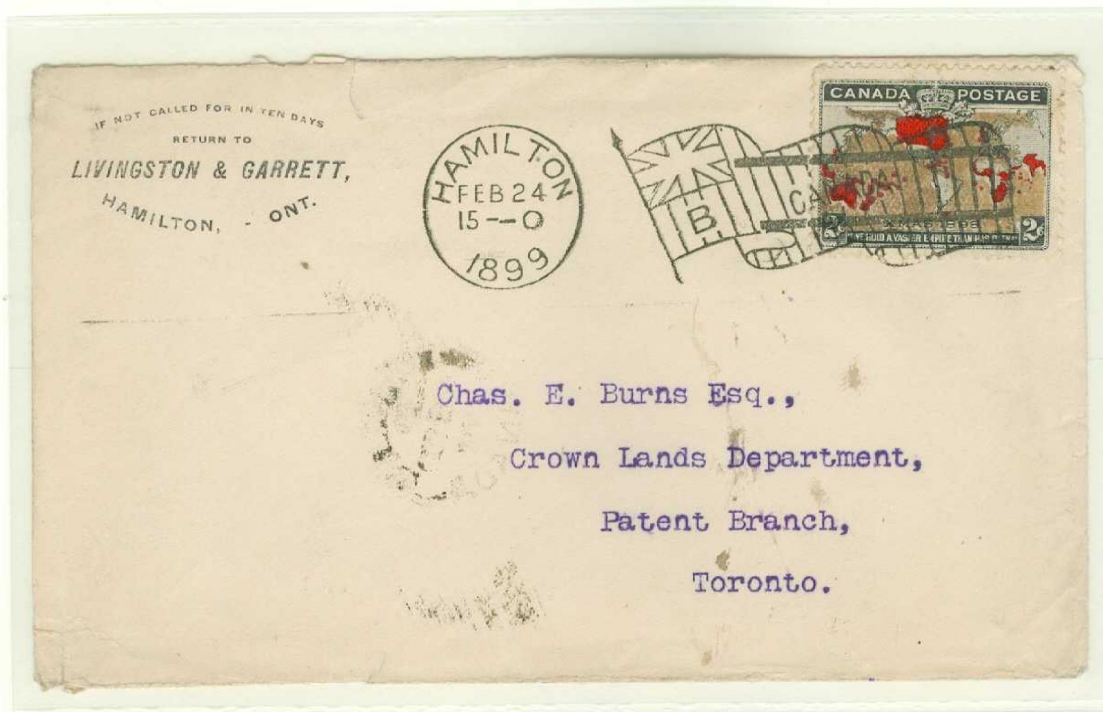 IF NOT CALLED FOR IN TEN DAYS
RETURN TO
LIVINGSTON & GARRETT,
HAMILTON, - ONT.
HAMILTON
FEB 24
15--0
1899
B
CANADA
CANADA POSTAGE
XMAS 1898
2c 2c
WE HOLD A VASTER EMPIRE THAN HAS BEEN
Chas. E. Burns Esq.,
Crown Lands Department,
Patent Branch,
Toronto.